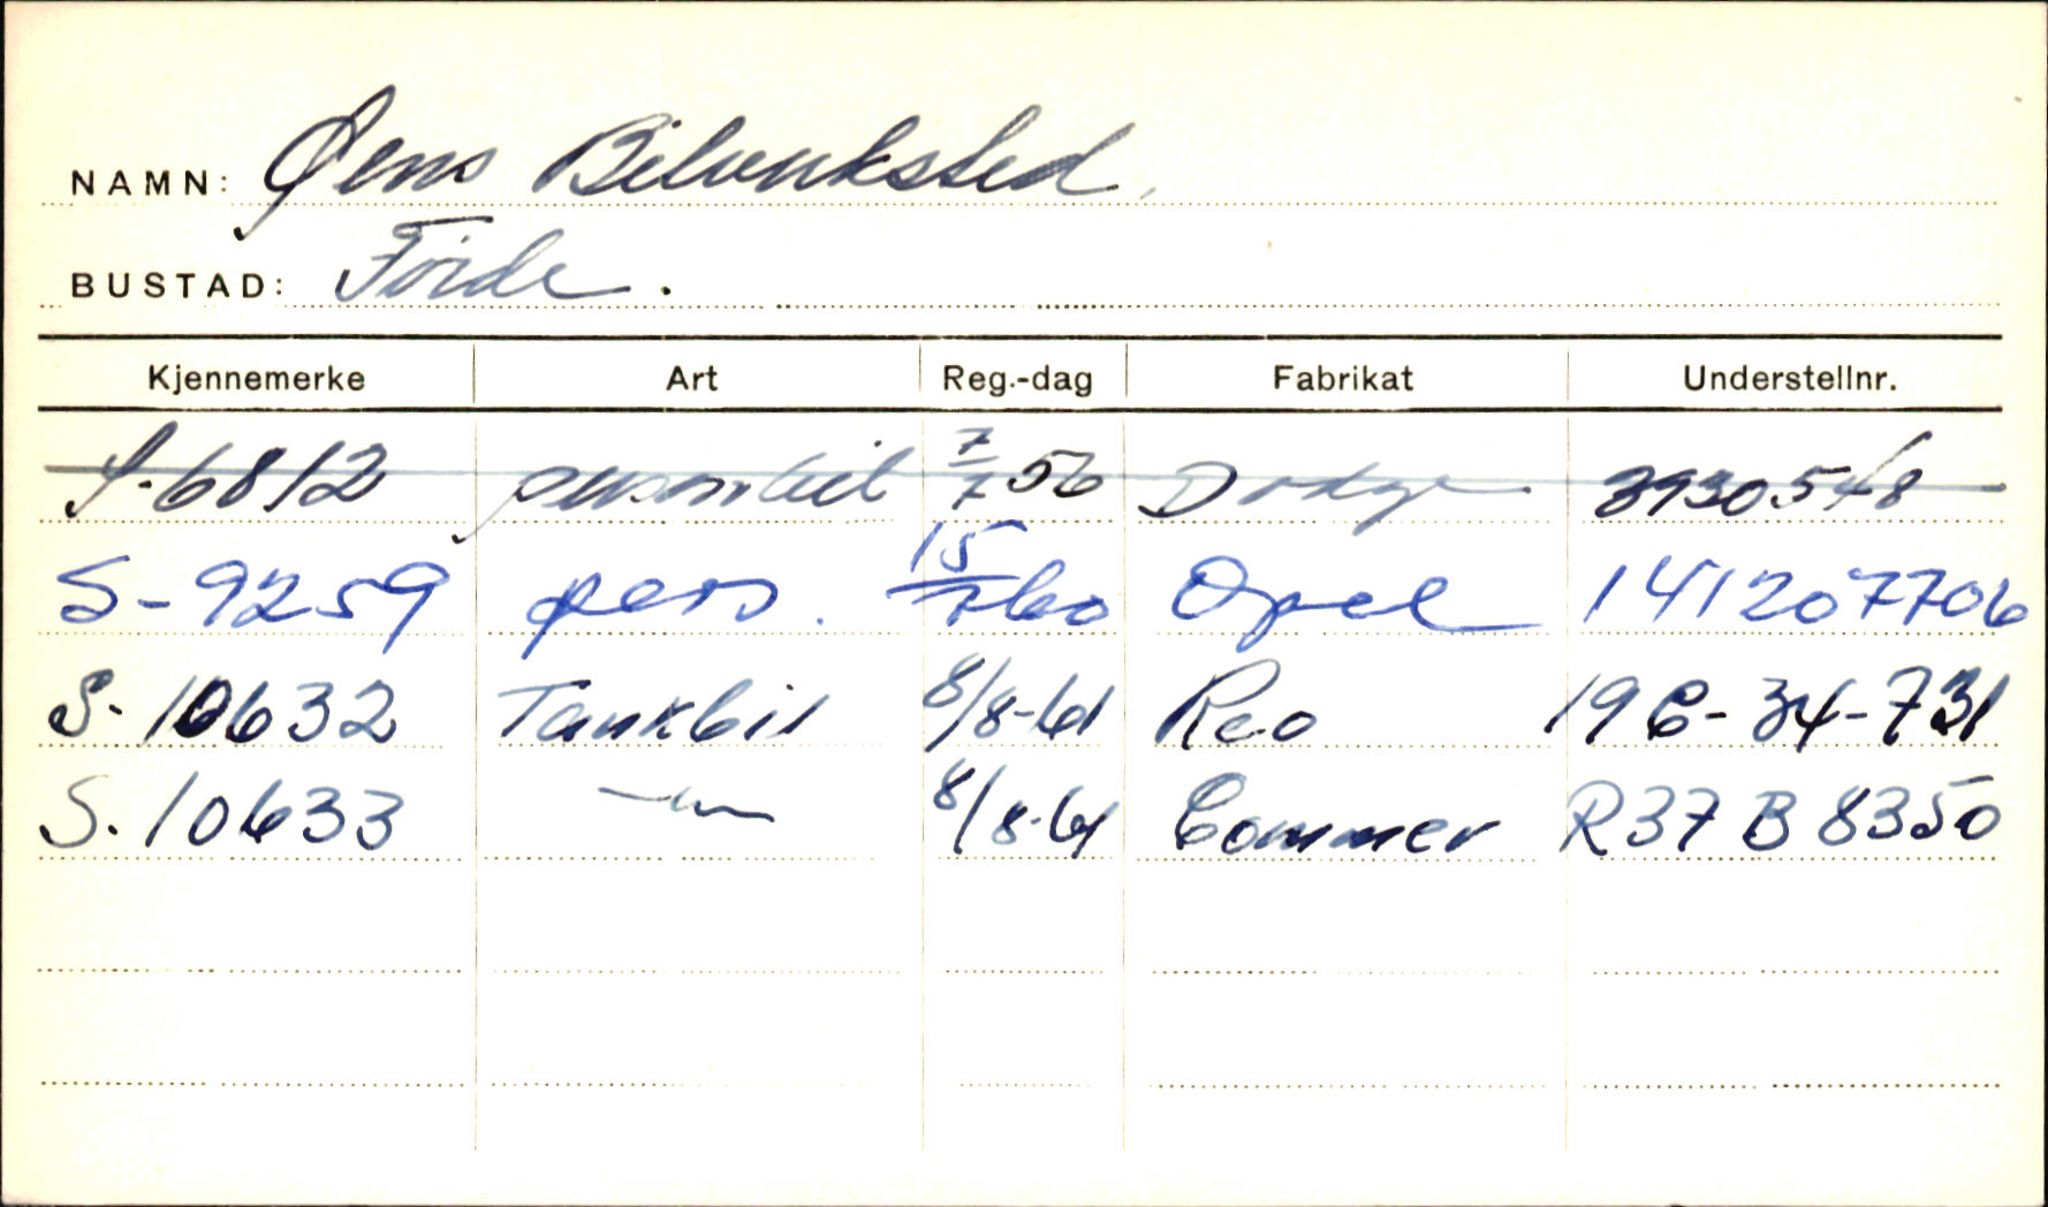 NAMN: Øens Bilverksted.
BUSTAD: Förde.
Kjennemerke Art Reg.-dag Fabrikat Understellnr.
S-6812 personbil 7/7 56 Dodge 3930548
S-9259 pers. 15/7 60 Opel 141207706
S-10632 Tankbil 8/8-61 Reo 19C-34-731
S.10633 —"— 8/8-61 Commer R37 B 8350